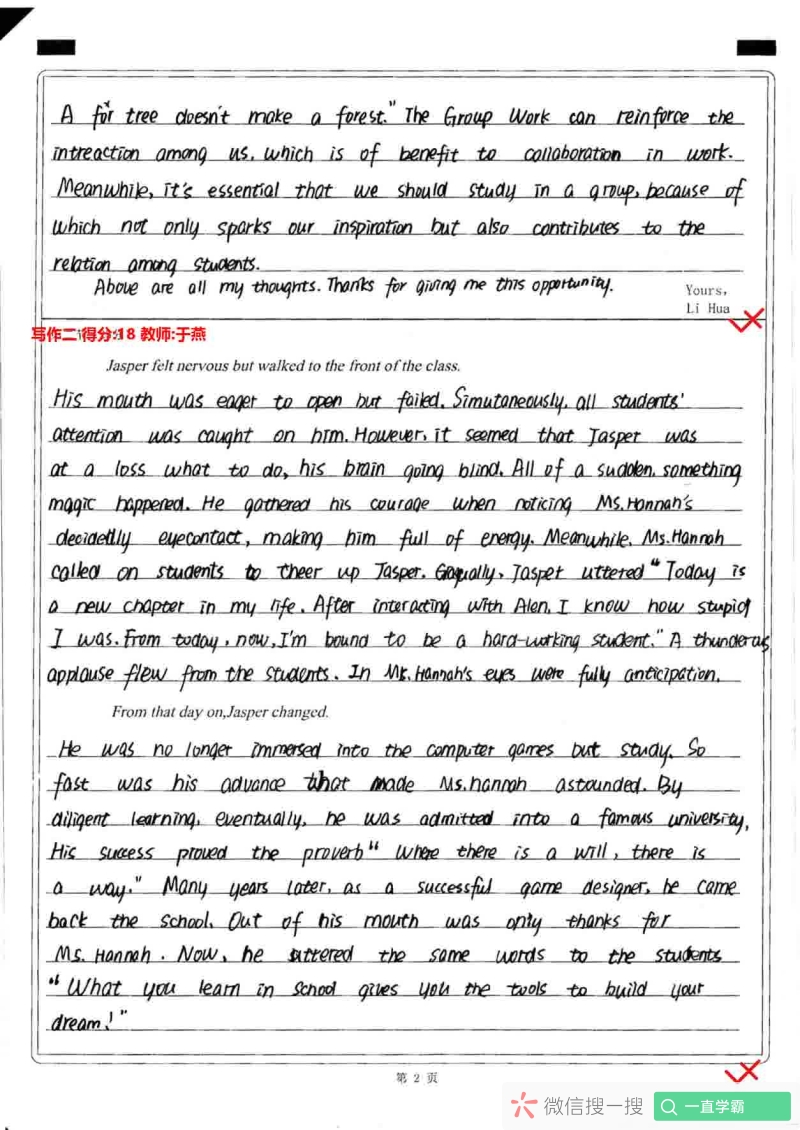 A for tree doesn't make a forest." The Group Work can reinforce the
intreaction among us, which is of benefit to collaboration in work.
Meanwhile, it's essential that we should study in a group, because of
which not only sparks our inspiration but also contributes to the
relation among students.
Above are all my thoughts. Thanks for giving me this opportunity.
Yours,
Li Hua
写作二 得分:18 教师:于燕
Jasper felt nervous but walked to the front of the class.
His mouth was eager to open but failed. Simutaneously, all students'
attention was caught on him. However, it seemed that Jasper was
at a loss what to do, his brain going blind. All of a sudden, something
magic happened. He gathered his courage when noticing Ms. Hannah's
decidedlly eyecontact, making him full of energy. Meanwhile, Ms. Hannah
called on students to cheer up Jasper. Jasper uttered "Today is
a new chapter in my life. After interacting with Alen, I know how stupid
I was. From today, now, I'm bound to be a hard-working student." A thunderous
applause flew from the students. In Ms. Hannah's eyes were fully anticipation.
From that day on,Jasper changed.
He was no longer immersed into the computer games but study. So
fast was his advance that made Ms. hannah astounded. By
diligent learning, eventually, he was admitted into a famous university,
His success proved the proverb" Where there is a will, there is
a way." Many years later, as a successful game designer, he came
back the school. Out of his mouth was only thanks for
Ms. Hannah. Now, he uttered the same words to the students
"What you learn in school gives you the tools to build your
dream!"
第 2 页
微信搜一搜 一直学霸